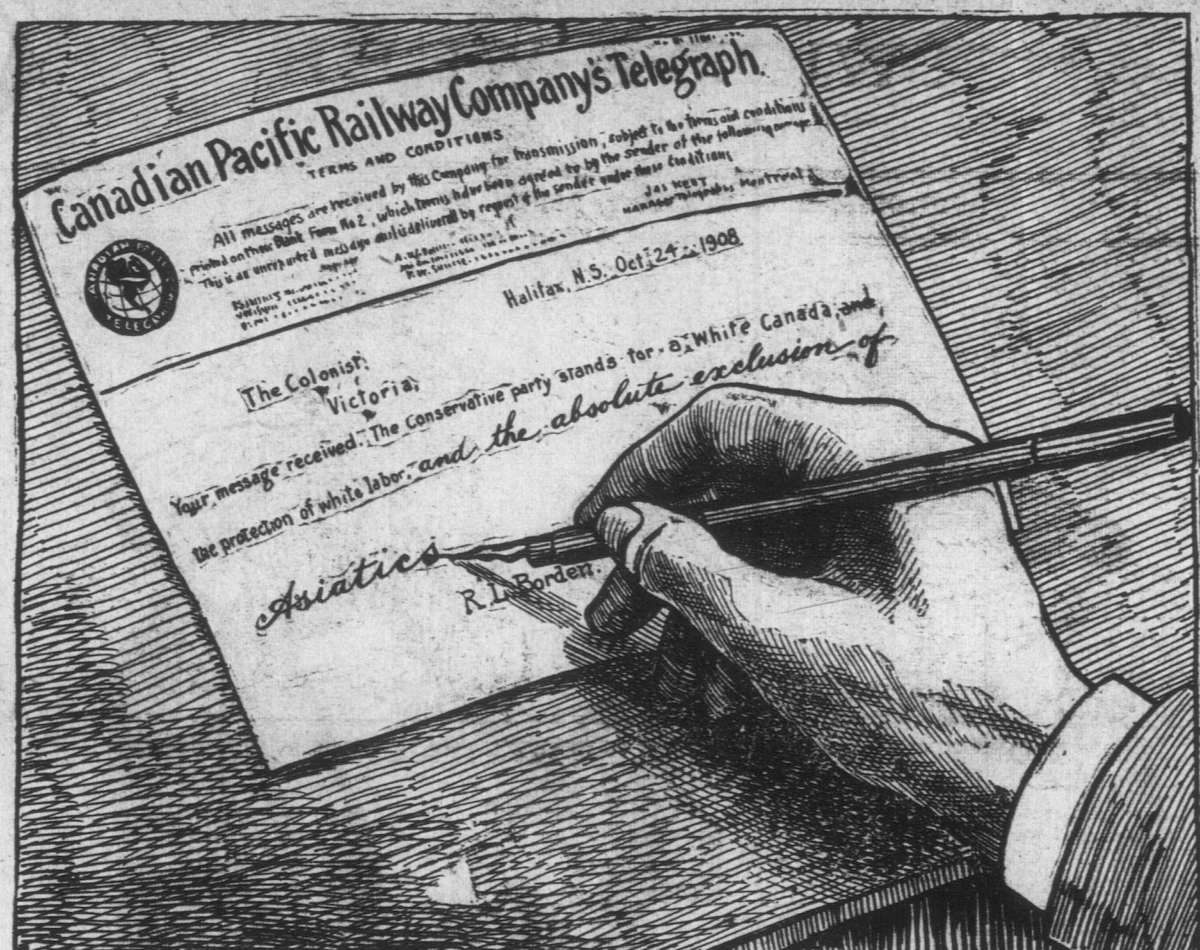 Canadian Pacific Railway Company's Telegraph.
TERMS AND CONDITIONS
All messages are received by this Company for transmission, subject to the terms and conditions
printed on their Blank Form No 2, which terms have been agreed to by the sender of the following message.
This is an unrepeated message and is delivered by request of the sender under these Conditions
JAS KENT
MANAGER Telegraphs, Montreal
CANADIAN PACIFIC
TELEGRAPH
Halifax, N.S. Oct. 24 - 1908
The Colonist,
Victoria,
Your message received. The Conservative party stands for a White Canada, and,
the protection of white labor, and the absolute exclusion of
Asiatics
R L Borden.